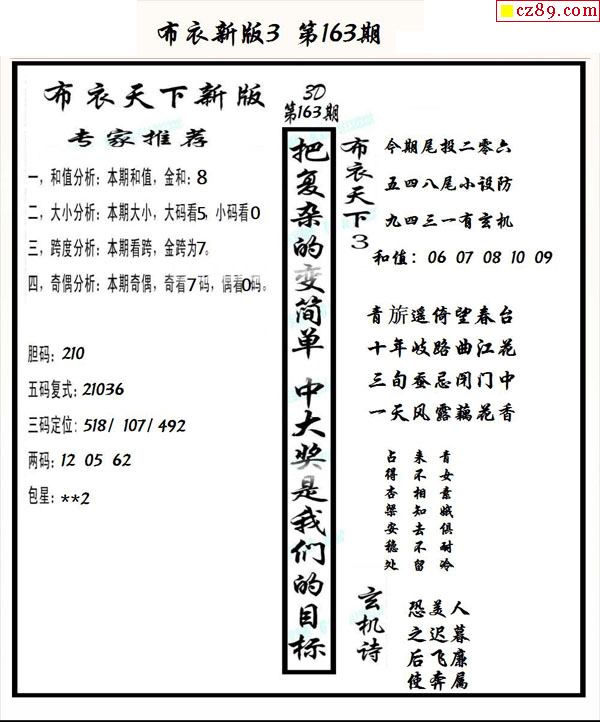 cz89.com
布衣新版3 第163期
布衣天下新版
专家推荐
一，和值分析：本期和值，金和：8
二，大小分析：本期大小，大码看5，小码看0
三，跨度分析：本期看跨，金跨为7。
四，奇偶分析：本期奇偶，奇看7码，偶看0码。
胆码：210
五码复式：21036
三码定位：518/ 107/ 492
两码：12 05 62
包星：**2
3D
第163期
把复杂的变简单 中大奖是我们的目标
布衣天下3
今期尾投二零六
五四八尾小设防
九四三一有玄机
和值：06 07 08 10 09
青旂遥倚望春台
十年岐路曲江花
三旬蚕忌闭门中
一天风露藕花香
青女素娥俱耐冷
来不相知去不留
占得杏梁安稳处
玄机诗
恐美人
之迟暮
后飞廉
使奔属